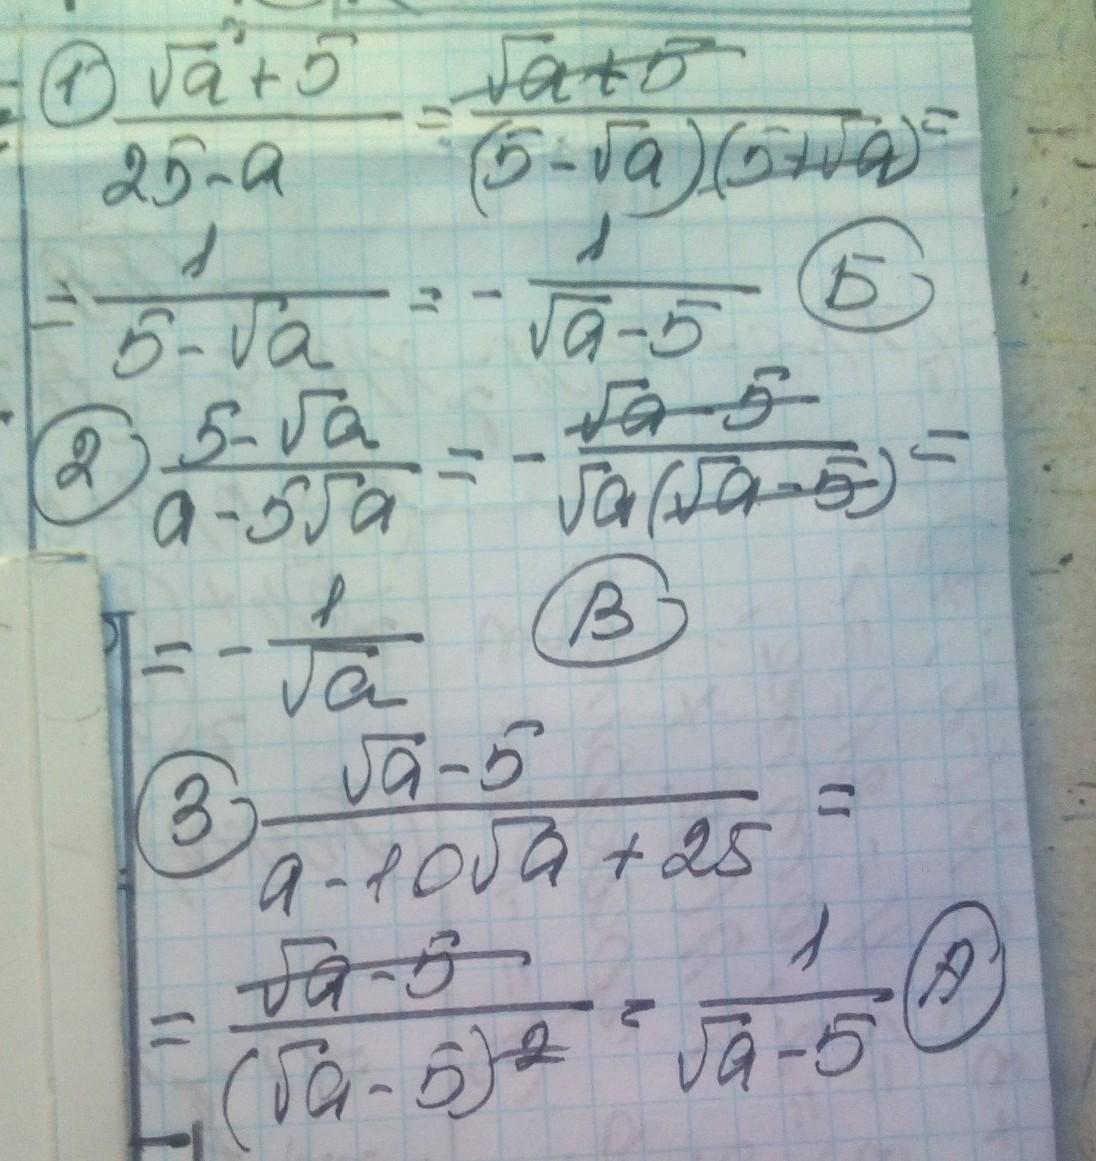 ① (√a + 5)/(25 - a) = (√a + 5)/((5 - √a)(5 + √a)) =
= 1/(5 - √a) = - 1/(√a - 5) Б
② (5 - √a)/(a - 5√a) = - (√a - 5)/(√a(√a - 5)) =
= - 1/√a В
③ (√a - 5)/(a - 10√a + 25) =
= (√a - 5)/(√a - 5)² = 1/(√a - 5) А